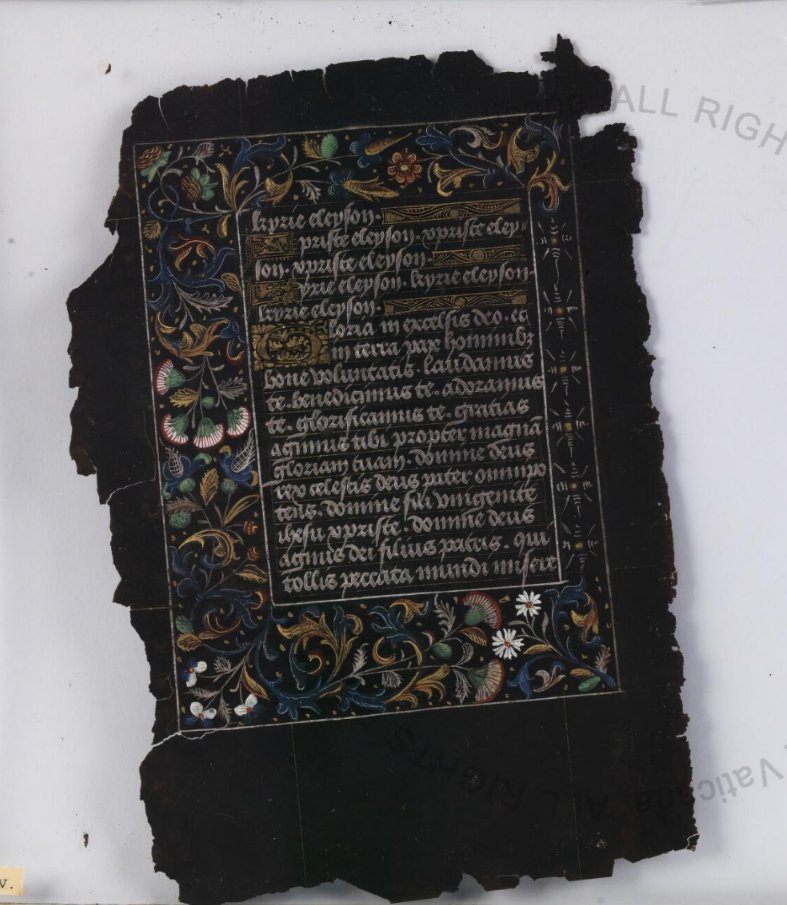 kyrie eleyson.
xpriste eleyson. xpriste eley-
son. xpriste eleyson.
Kyrie eleyson. kyrie eleyson.
kyrie eleyson.
Gloria in excelsis deo. et
in terra pax hominibꝫ
bone voluntatis. laudamus
te. benedicimus te. adoramus
te. glorificamus te. gratias
agimus tibi propter magnã
gloriam tuam. domine deus
rex celestis deus pater omnipo
tens. domine fili vnigenite
ihesu xpriste. domine deus
agnus dei filius patris. qui
tollis peccata mundi misere
ALL RIGH
Vaticana ALL RIGHTS
v.